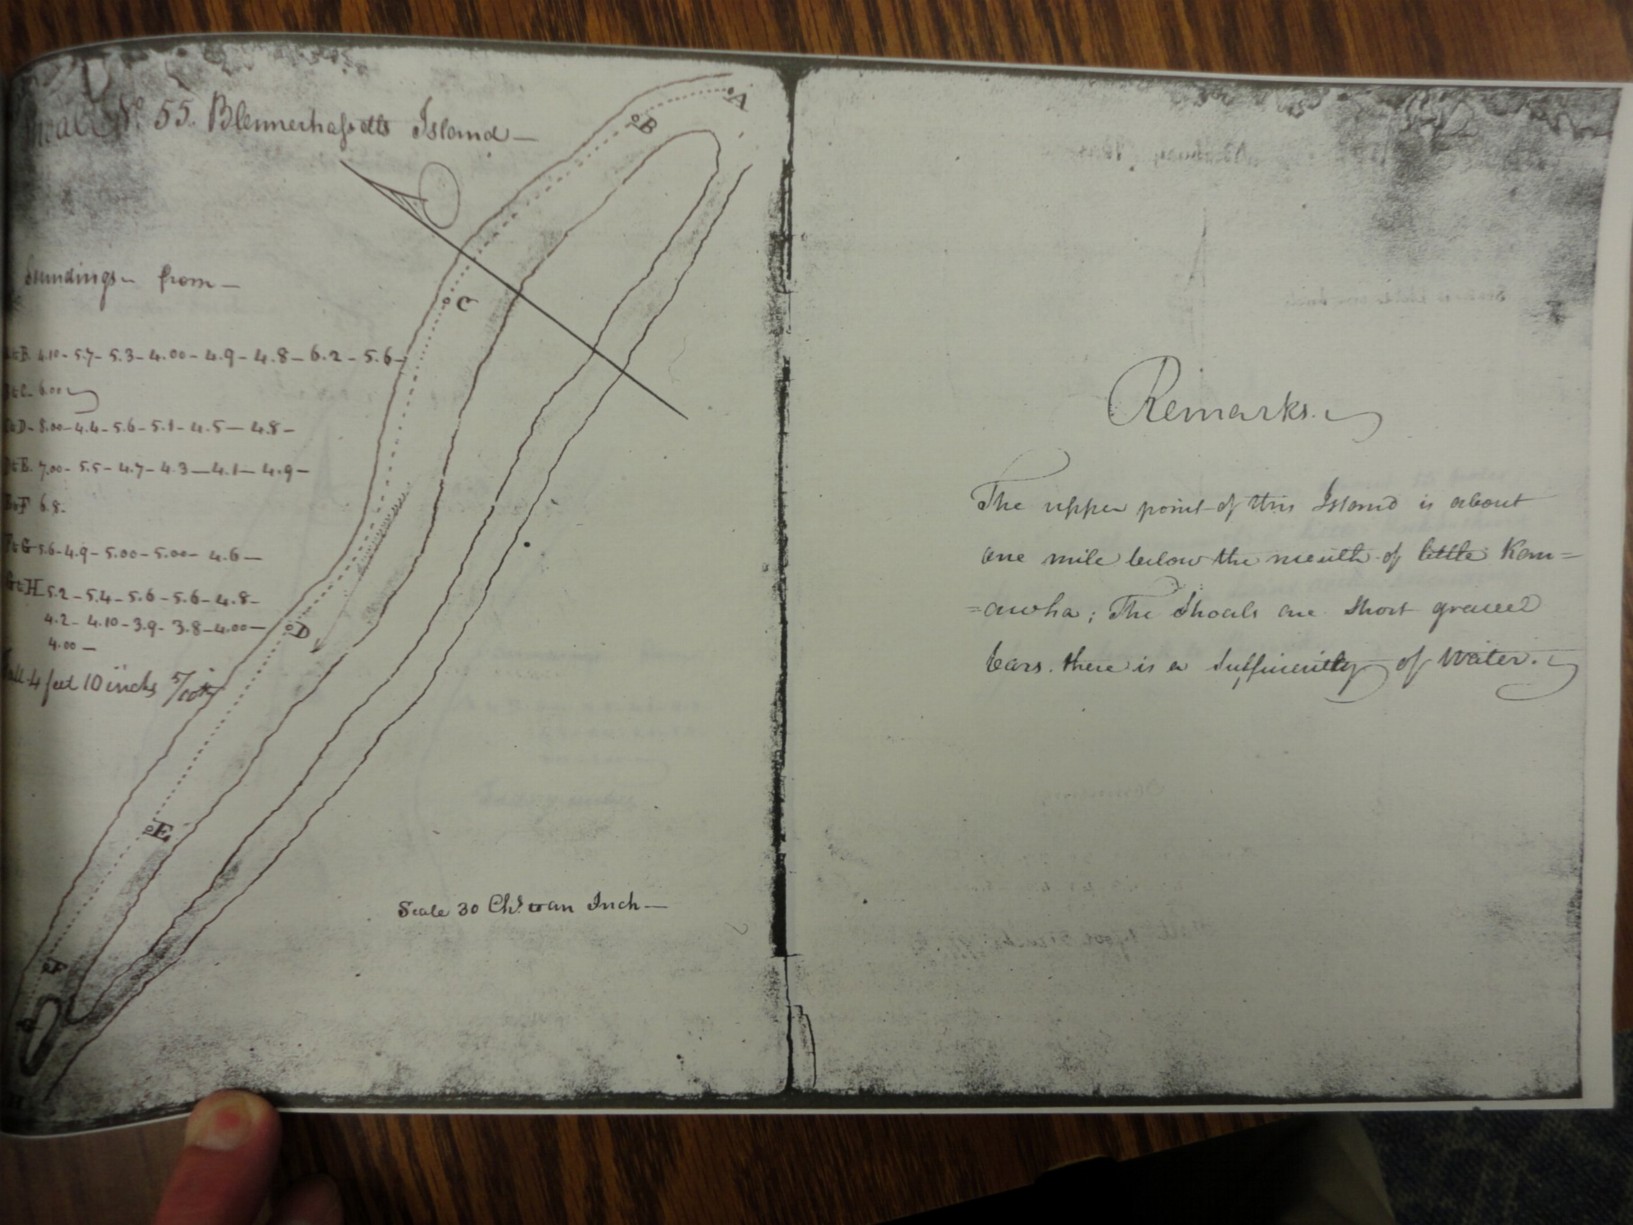 Shoal No. 55. Blennerhassetts Island —
Soundings — from —
A to B. 4.10 - 5.7 - 5.3 - 4.00 - 4.9 - 4.8 - 6.2 - 5.6 -
B to C. 6.00
C to D - 8.00 - 4.4 - 5.6 - 5.1 - 4.5 — 4.8 -
D to E. 7.00 - 5.5 - 4.7 - 4.3 — 4.1 — 4.9 -
E to F 6.8.
F to G 5.6 - 4.9 - 5.00 - 5.00 - 4.6 —
G to H 5.2 - 5.4 - 5.6 - 5.6 - 4.8 -
4.2 - 4.10 - 3.9 - 3.8 - 4.00 —
4.00 —
Fall 4 feet 10 inches 5/100th
A
B
C
D
E
F
G
H
Scale 30 Chs. to an Inch —
Remarks.
The upper point of this Island is about
one mile below the mouth of little Kan=
=awha; The Shoals are Short gravel
bars. there is a Sufficiently of Water.